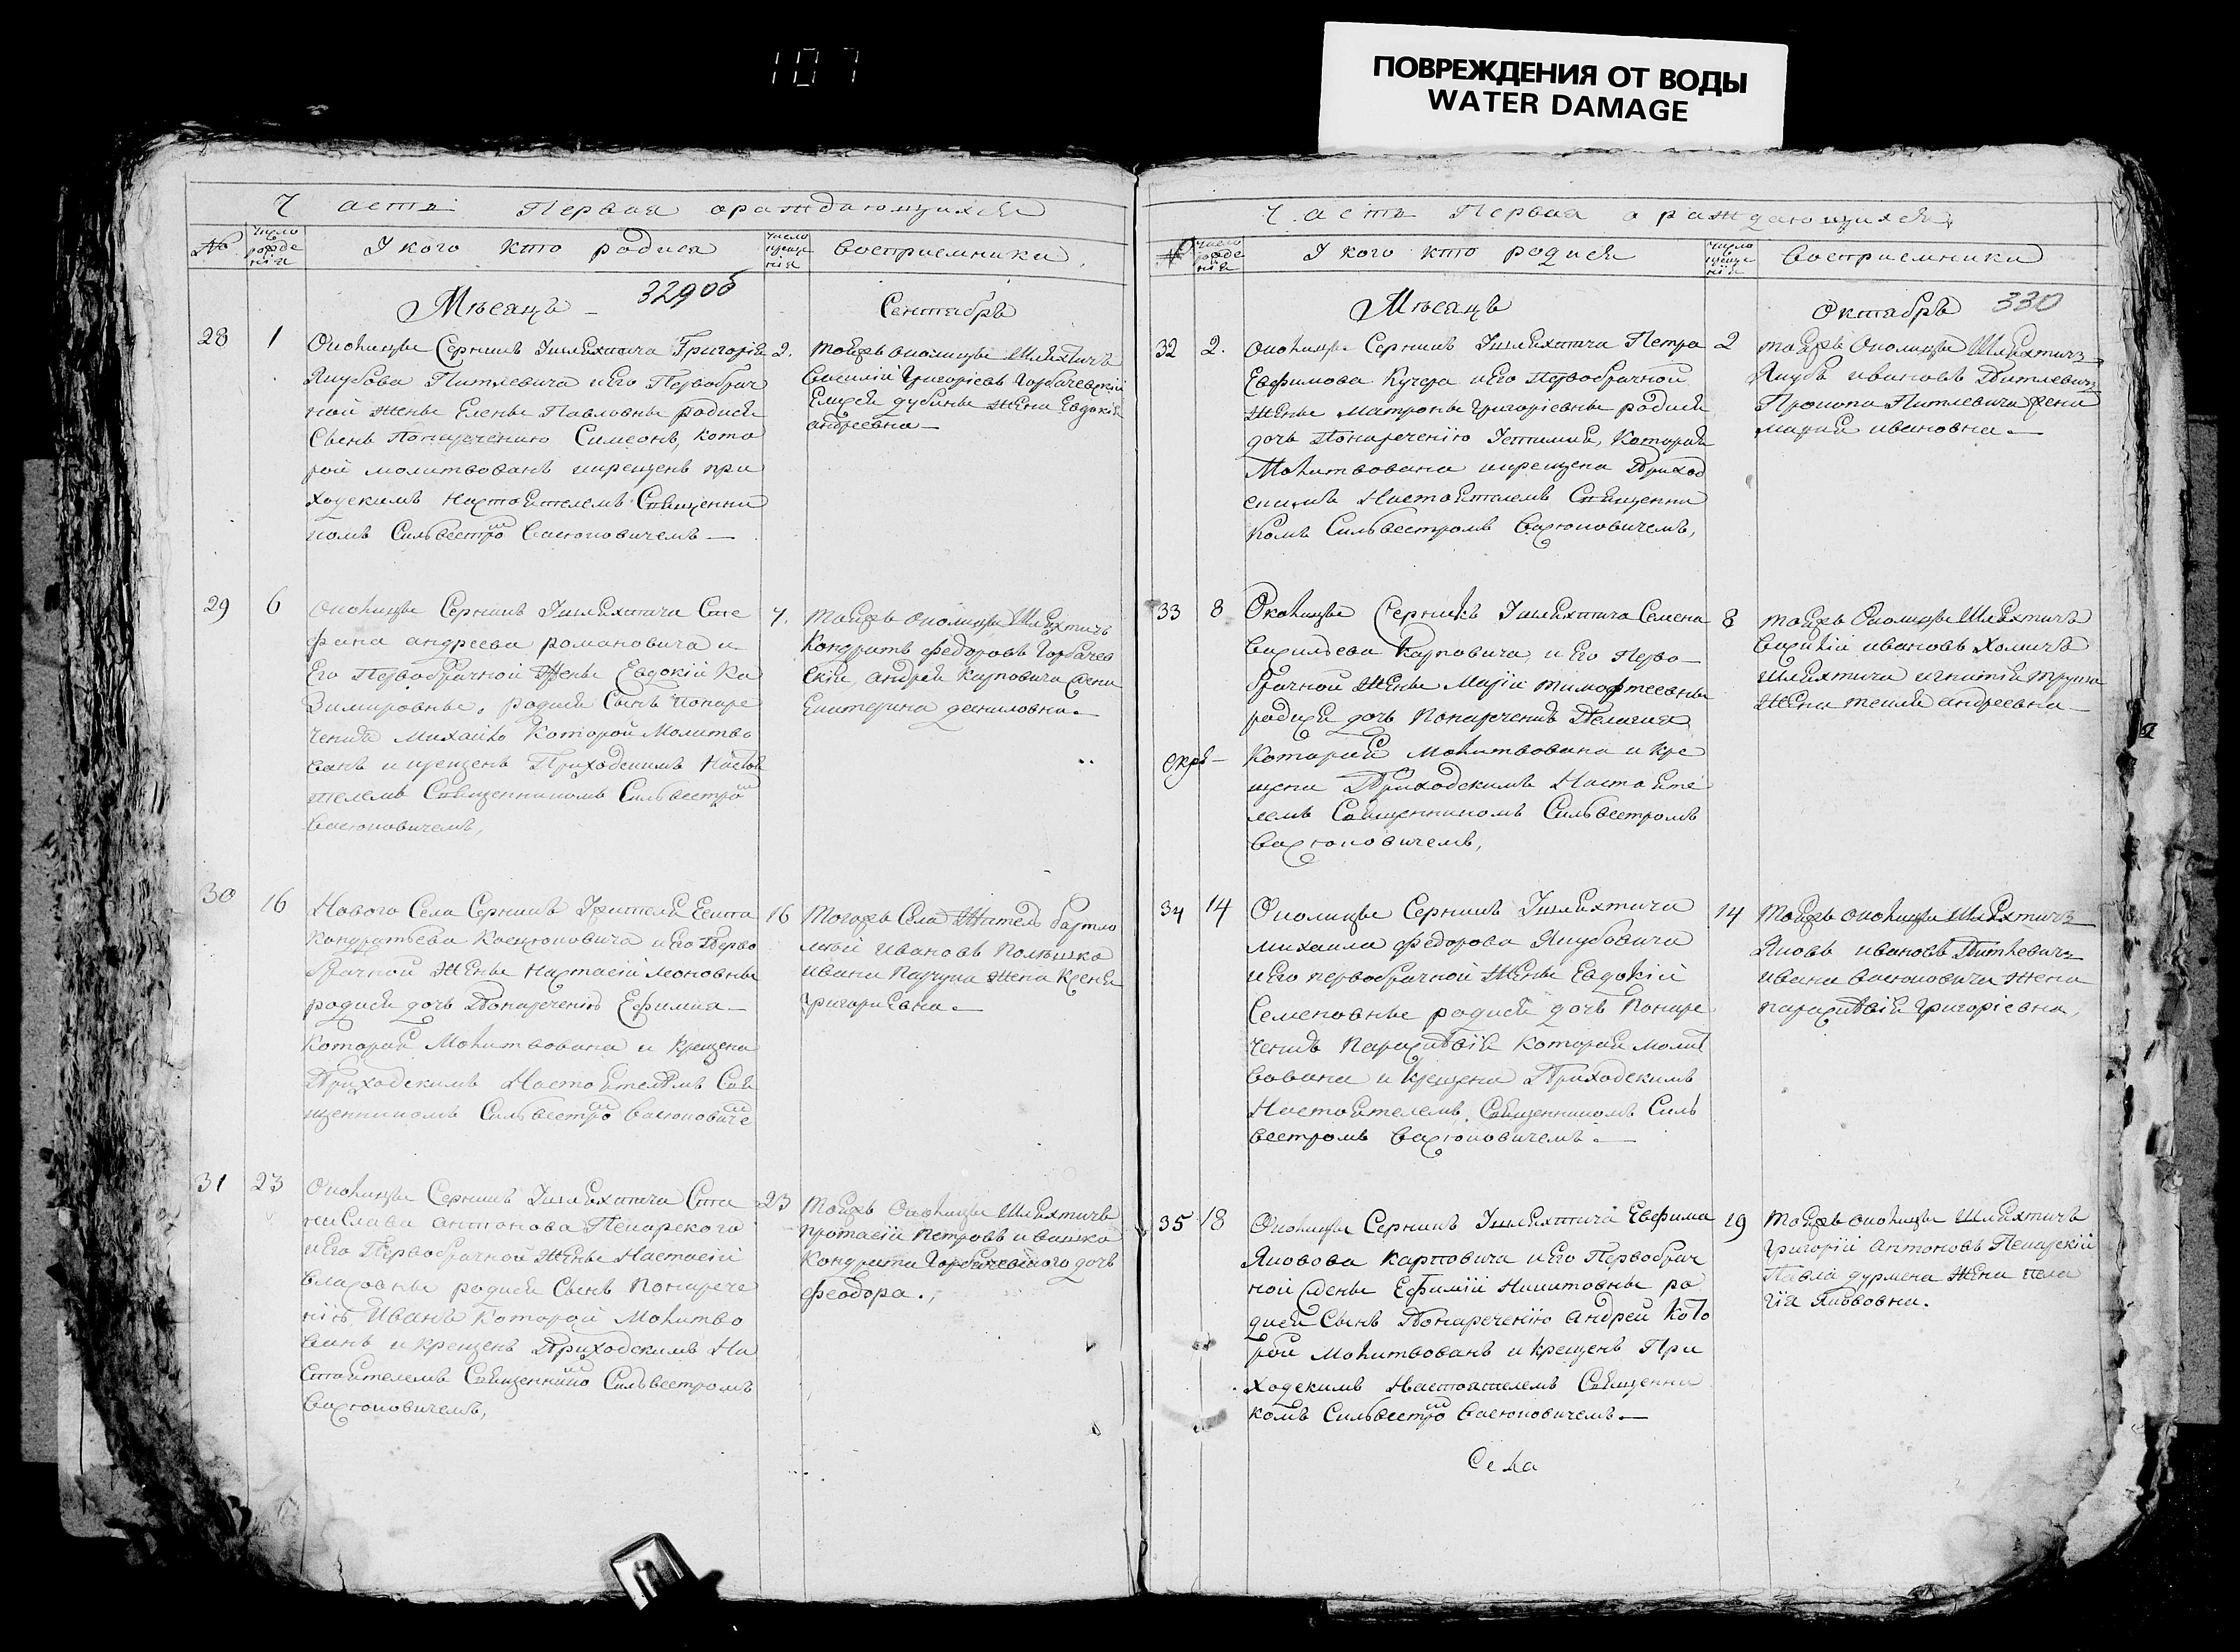 107
ПОВРЕЖДЕНИЯ ОТ ВОДЫ
WATER DAMAGE
Часть Первая ораждающихся
№ число рожденія У кого кто родися число крещенія Восприемники
Мѣсяцъ 329об Сентябрь
28 1 Околицы Серникъ Ушляхтича Григорія
Якубова Питлевича и Его Первобрач
ной женѣ Еленѣ Павловнѣ родися
Сынъ Понаречению Симеонъ, кото
рой молитвованъ икрещенъ при
ходскимъ настоятелемъ Священни
комъ Сильвестро Васюковичемъ
2. тойжъ околицы Шляхтичъ
Василій Григоріевъ Горбачевскій
Елисея дубины жена Евдокія
андреевна
29 6 Околицы Серникъ Ушляхтича Сте
фана андреева романовича и
Его Первобрачной женѣ Евдокій Ка
зимировнѣ родися Сынъ Понаре
Михайло Которой Молитво
ванъ и крещенъ Приходскимъ Настоя
телемъ Священникомъ Сильвестро
Васюковичемъ,
7. тойжъ околицы Шляхтичъ
Кондратъ федоровъ Горбачев
скій, андрея Карповича жена
Екатерина даниловна
30 16 Нового Села Серникъ Ужителя
Кондратьева и Его Перво
брачной женѣ Настасій леоновнѣ
родися дочь Понаречению Ефимия
Которая Молитвована и крещена
Приходскимъ Настоятелемъ Свя
щенникомъ Сильвестро Васюковиче
16 Тогожъ Села Житель бартло
мей Ивановъ
ивана жена Ксения
григориевна
31 23 Околицы Серникъ Ушляхтича Ста
нислава антонова Пекарского
и Его Первобрачной женѣ Настасій
родися Сынъ Понарече
нію Иванъ Которой Молитво
ванъ и крещенъ Приходскимъ На
стоятелемъ Священнико Сильвестромъ
Васюковичемъ,
23 Тойжъ Околицы Шляхтичъ
протасій Петровъ ивашко
Кондрата Горбачевского дочь
феодора.
Часть Первая ораждающихся
№ число рожденія У кого кто родися число крещенія Восприемники
Мѣсяцъ Октябрь 330
32 2. Околицы Серникъ Ушляхтича Петра
Евфимова Кучера и Его Первобрачной
женѣ Матронѣ Григоріевнѣ родися
дочь Понареченію Которая
Молитвована икрещена Приход
скимъ Настоятелемъ Священни
комъ Сильвестромъ Васюковичемъ,
2 тойжъ Околицы Шляхтичъ
Якубъ ивановъ Питлевичъ
Прокопа Питлевича жена
мария ивановна
33 8 Околицы Серникъ Ушляхтича Семена
Васильева Карповича, и Его Перво
брачной женѣ Маріи тимофтеевны
родися дочь Понаречению Пелагия
окрѣ
Которая Молитвована и кре
щена Приходскимъ Настояте
лемъ Священникомъ Сильвестромъ
Васюковичемъ,
8 тойжъ Околицы Шляхтичъ
Василій ивановъ Хомичъ
шляхтича игнатія
жена текля андреевна
34 14 Околицы Серникъ Ушляхтича
михаила федорова Якубовича
и Его первобрачной женѣ Евдокій
Семеновнѣ родися дочь Понаре
ченію Параскевія Которая молит
вована и крещена Приходскимъ
Настоятелемъ Священникомъ Силь
вестромъ Васюковичемъ
14 Тойжъ околицы Шляхтичъ
Яковъ ивановъ Питкевичъ
ивана Васюковича жена
параскевія григоріевна,
35 18 Околицы Серникъ Ушляхтича Евфима
Яковова Карповича и Его Первобрач
ной женѣ Ефимій Никитовнѣ ро
дися Сынъ Понареченію Андрей кото
рой молитвованъ и крещенъ При
ходскимъ Настоятелемъ Священни
комъ Сильвестро Васюковичемъ
19 тойжъ околицы Шляхтичъ
Григорій антоновъ Пекарскій
Павла дурмена жена пела
гія Якововна.
Села